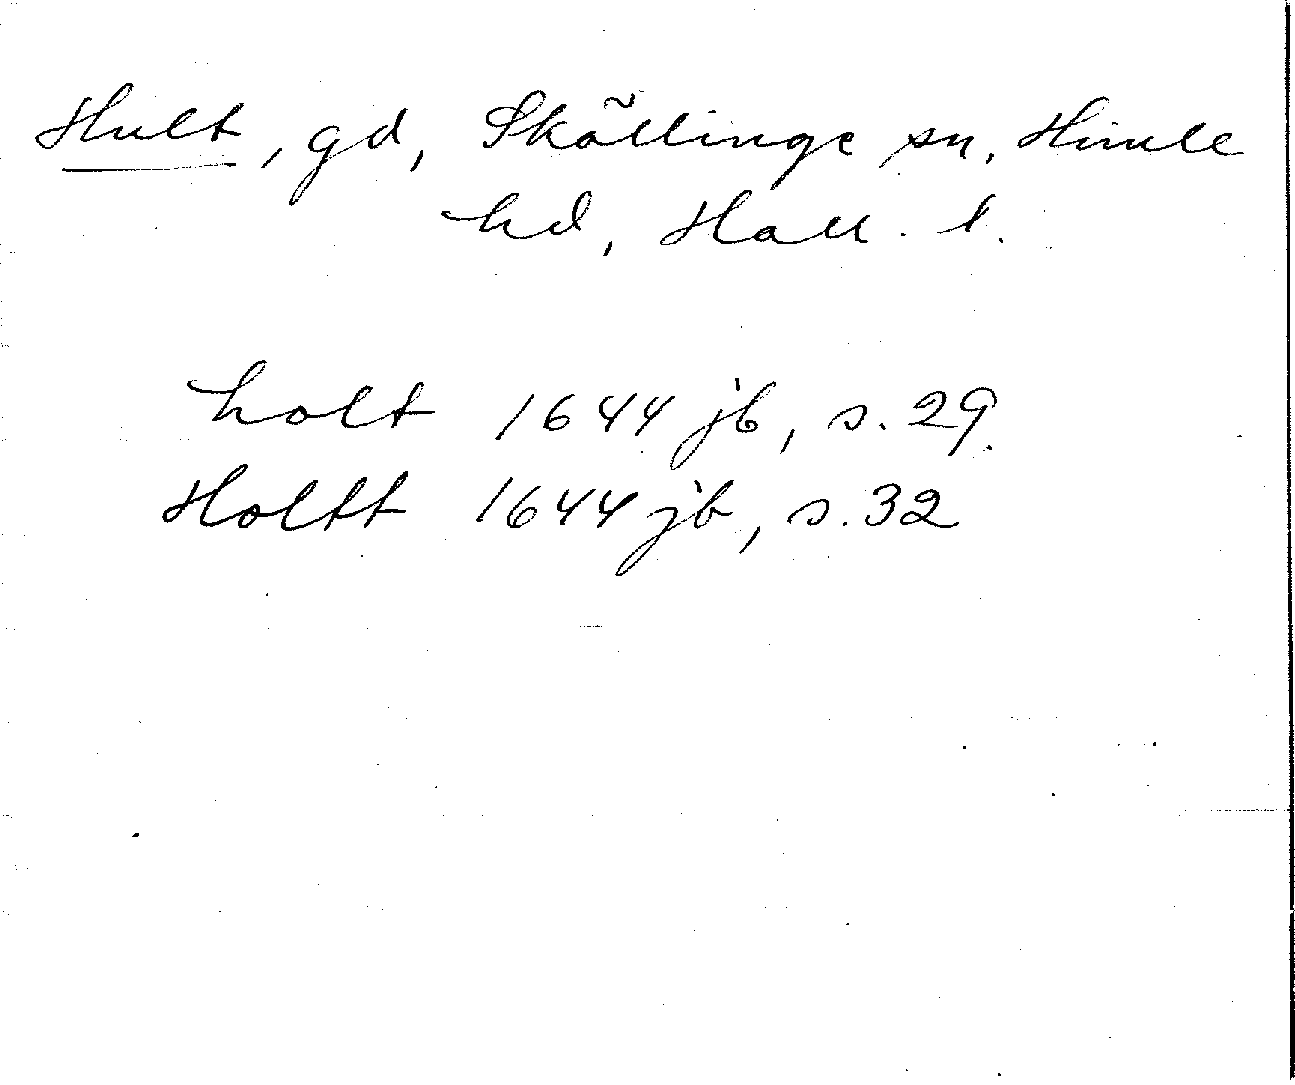 Hult, gd, Skällinge sn, Himle
hd, Hall. l.
holt 1644 jb, s. 29.
Holtt 1644 jb, s. 32